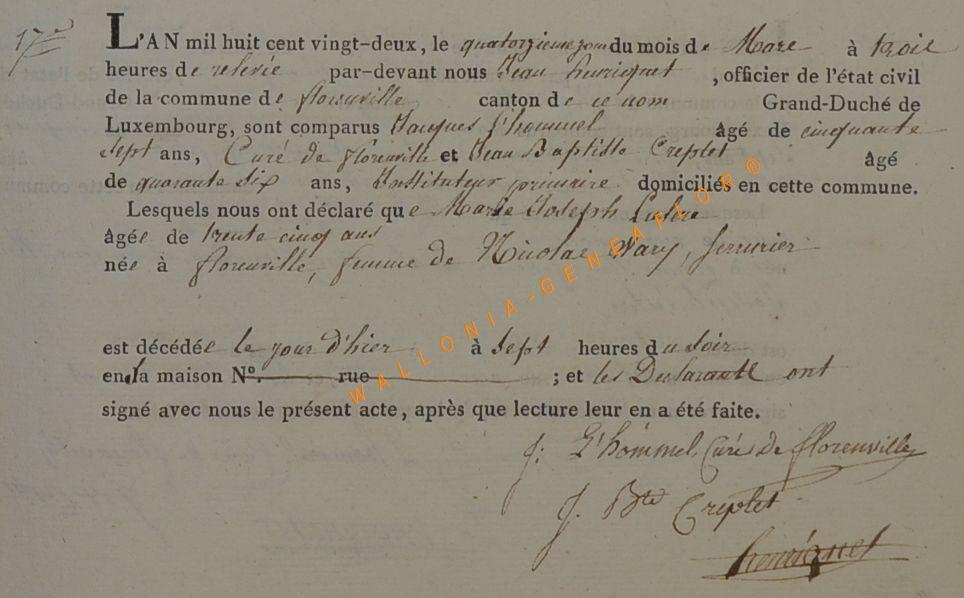 17e
L'AN mil huit cent vingt-deux, le quatorzieme jour du mois de Mars à trois
heures de relevée par-devant nous Jean henriquet, officier de l'état civil
de la commune de florenville canton de ce nom Grand-Duché de
Luxembourg, sont comparus Jacques l'hommel âgé de cinquante
sept ans, Curé de florenville et Jean Baptiste Creplet âgé
de quarante six ans, Instituteur primaire domiciliés en cette commune.
Lesquels nous ont déclaré que Marie Joseph
âgée de trente cinq ans
née à florenville, femme de Nicolas Wary, serrurier
est décédée le jour d'hier à sept heures du soir
en la maison N°. rue ; et les Declarants ont
signé avec nous le présent acte, après que lecture leur en a été faite.
J: L'hommel Curé de florenville
J. Bte Creplet
henriquet
WALLONIA-GENEAFLOR®